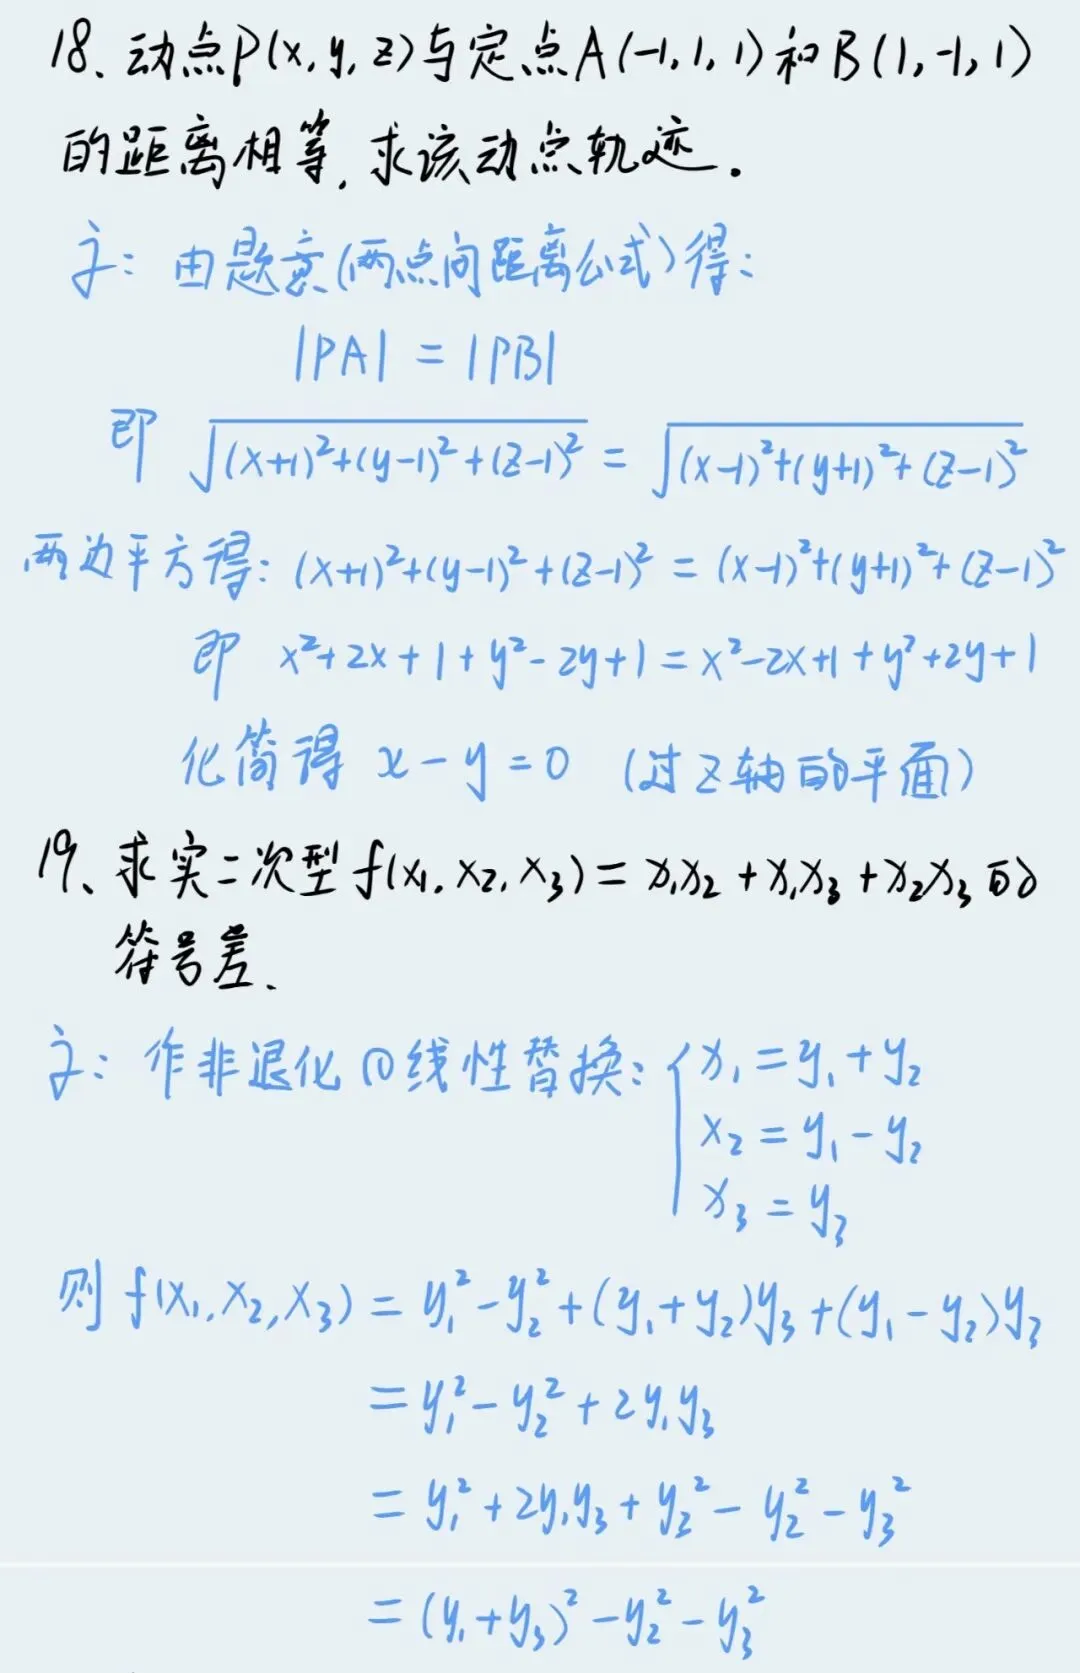 18、动点P(x, y, z)与定点A(-1, 1, 1)和B(1, -1, 1)
的距离相等，求该动点轨迹.
讠: 由题意(两点间距离公式)得:
|PA| = |PB|
即 √((x+1)²+(y-1)²+(z-1)²) = √((x-1)²+(y+1)²+(z-1)²)
两边平方得: (x+1)²+(y-1)²+(z-1)² = (x-1)²+(y+1)²+(z-1)²
即 x²+2x+1+y²-2y+1=x²-2x+1+y²+2y+1
化简得 x-y=0 (过Z轴的平面)
19、求实二次型f(x₁, x₂, x₃) = x₁x₂+x₁x₃+x₂x₃的
符号差.
讠: 作非退化的线性替换: { x₁=y₁+y₂
x₂=y₁-y₂
x₃=y₃
则 f(x₁, x₂, x₃) = y₁²-y₂²+(y₁+y₂)y₃+(y₁-y₂)y₃
=y₁²-y₂²+2y₁y₃
=y₁²+2y₁y₃+y₂²-y₂²-y₃²
=(y₁+y₃)²-y₂²-y₃²